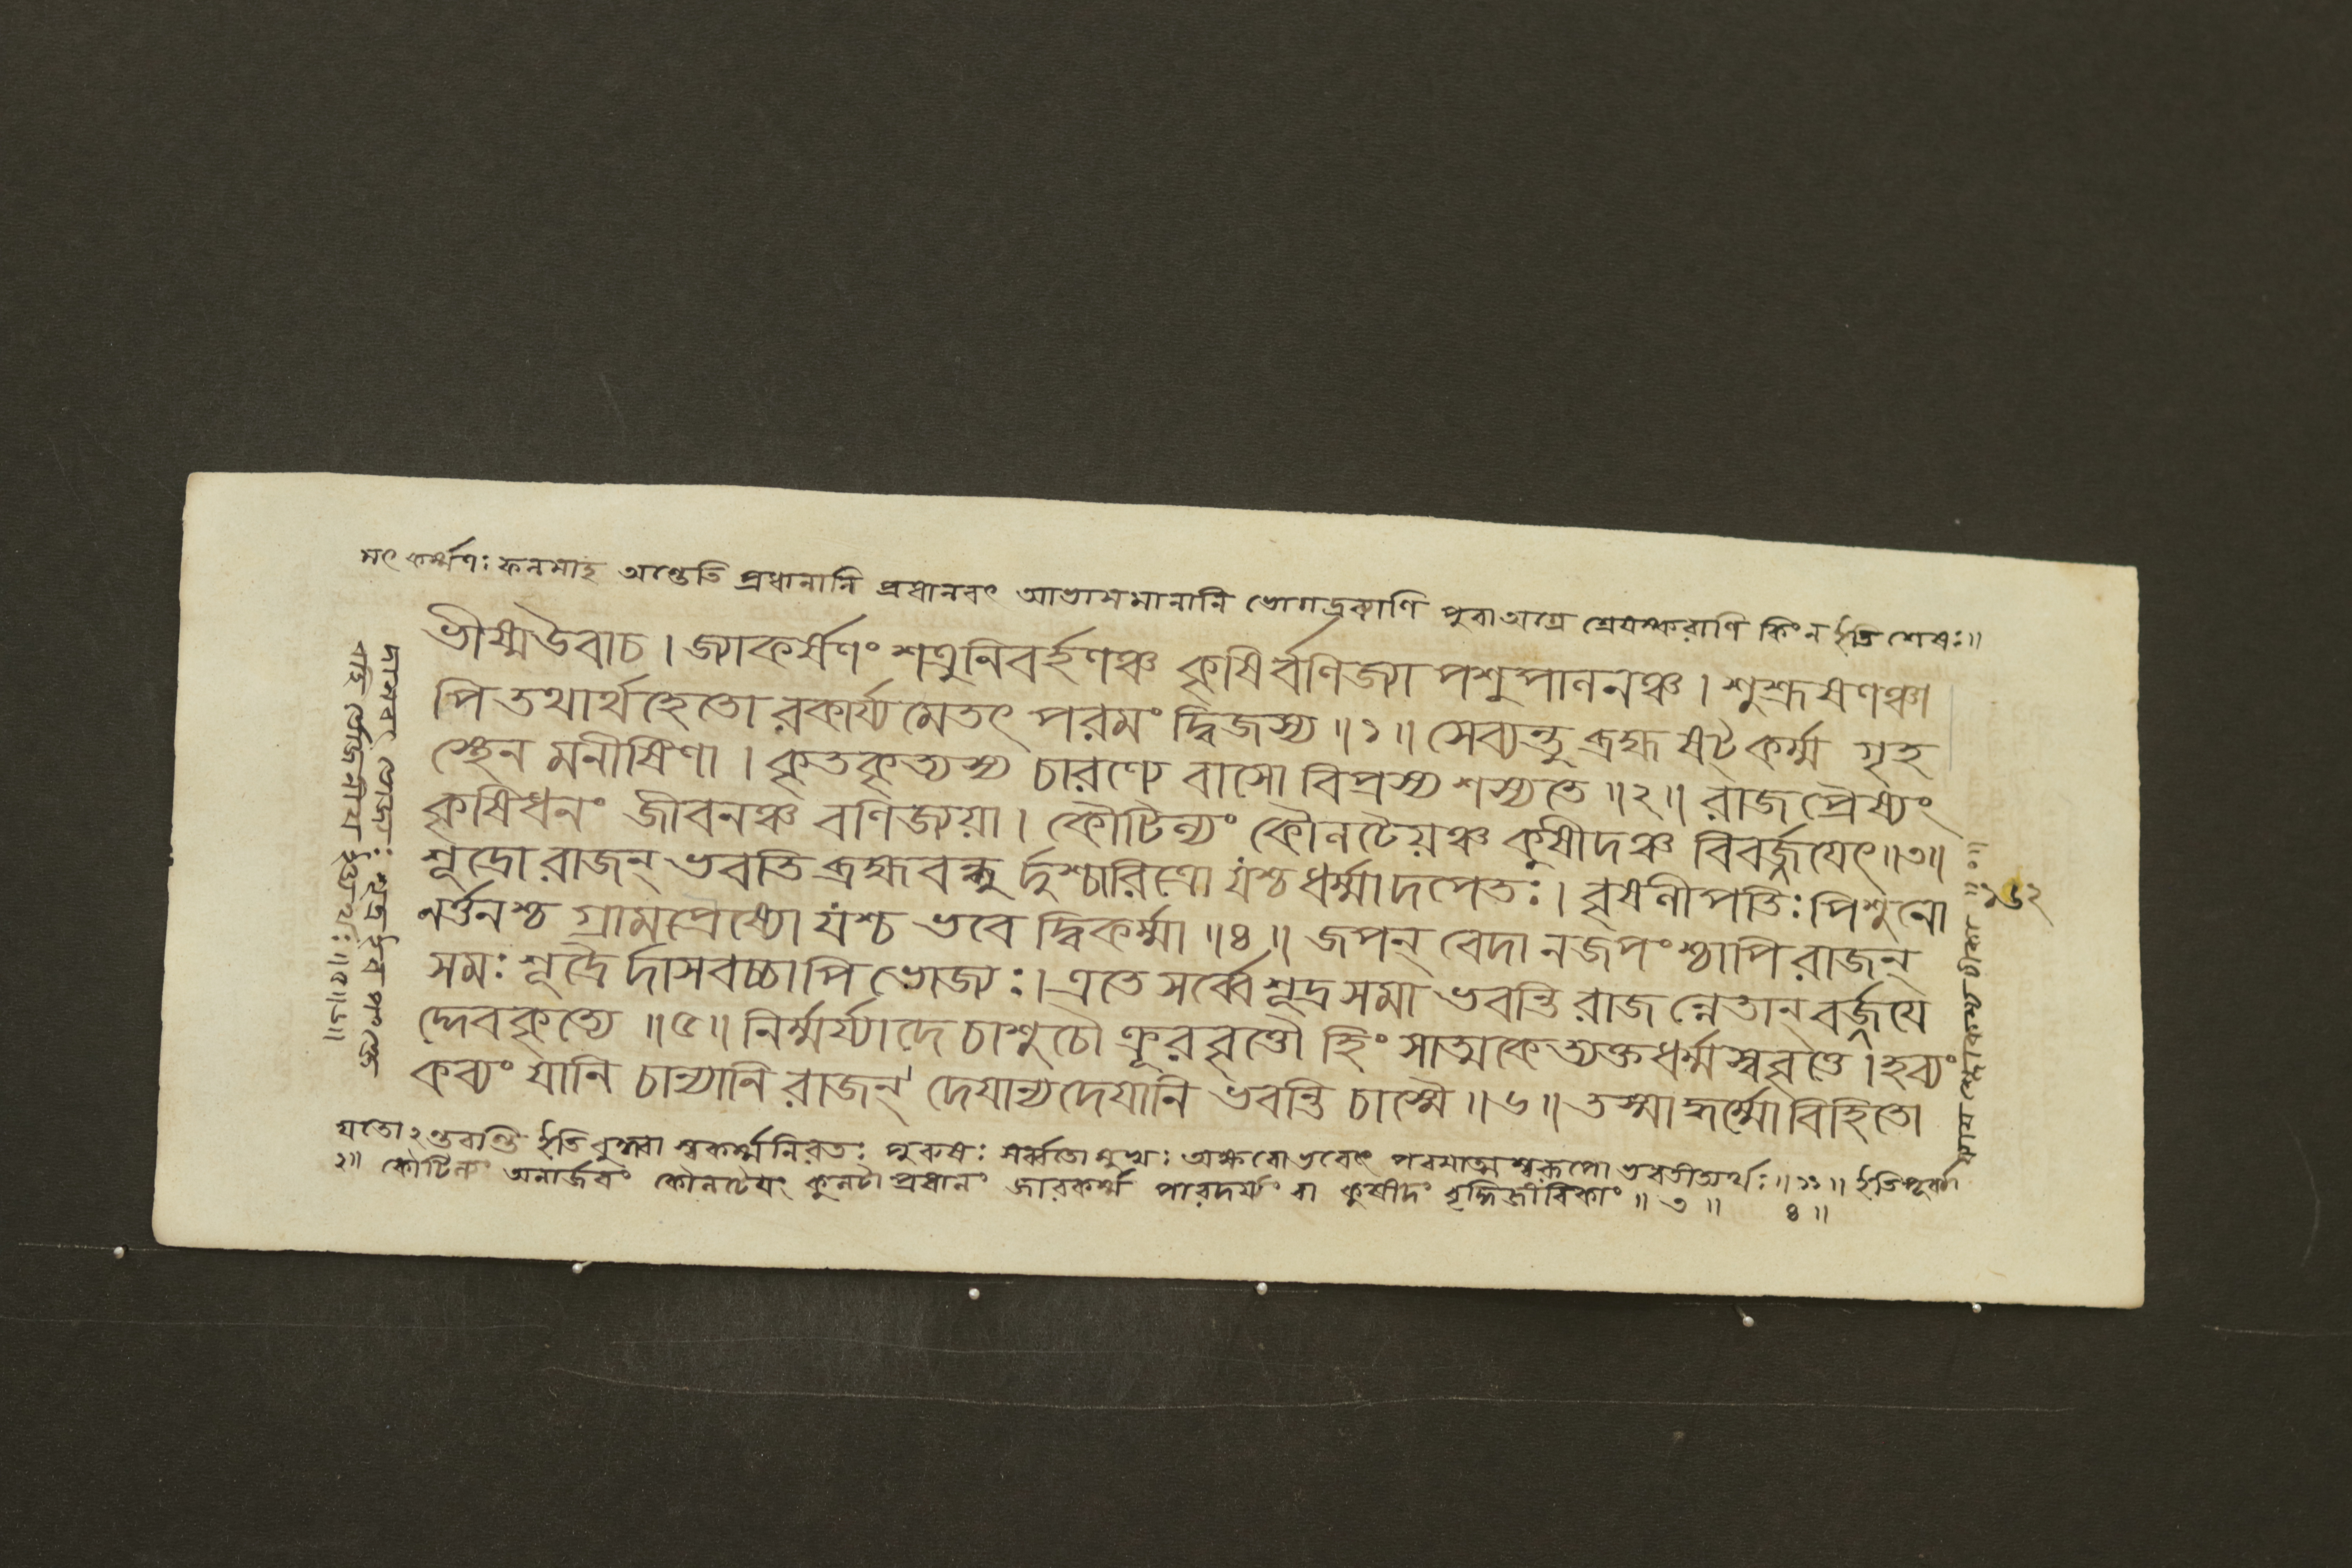 সৎ কর্ম্মণঃ ফলমাহ অন্তেতি প্রধানানি প্রধানবৎ আভাসমানানি ভোগদ্রব্যাণি পুরা অগ্রে শ্রেয়স্করাণি কিং ন ইতি শেষঃ॥
ভীষ্মউবাচ । জ্যাকর্ষণং শত্রুনিবর্হণঞ্চ কৃষির্বণিজ্যা পশুপালনঞ্চ । শুশ্রূষণঞ্চা
পি তথার্থহেতো রকার্য্যমেতৎ পরমং দ্বিজস্য ॥১॥ সেব্যন্তু ব্রহ্ম ষট্‌কর্ম্ম গৃহ
স্থেন মনীষিণা । কৃতকৃত্যস্য চারণ্যে বাসো বিপ্রস্য শস্যতে ॥২॥ রাজপ্রৈষ্যং
কৃষিধনং জীবনঞ্চ বণিজ্যয়া । কৌটিল্যং কৌলটেয়ঞ্চ কুষীদঞ্চ বিবর্জ্জয়েৎ॥৩॥
শূদ্রো রাজন্ ভবতি ব্রহ্মবন্ধু র্দুশ্চারিত্রো যশ্চ ধর্ম্মাদপেতঃ । বৃষলীপতিঃ পিশুনো
নর্ত্তনশ্চ গ্রামপ্রৈষ্যো যশ্চ ভবে দ্বিকর্ম্মা ॥৪॥ জপন্ বেদা নজপংশ্চাপি রাজন্
সমঃ শূদ্রৈ র্দাসবচ্চাপি ভোজ্যঃ। এতে সর্ব্বে শূদ্রসমা ভবন্তি রাজ ন্নেতান্ বর্জ্জয়ে
দ্দেবকৃত্যে ॥৫॥ নির্ম্মর্য্যাদে চাশুচৌ ক্রূরবৃত্তৌ হিংসাত্মকে ত্যক্তধর্ম্মস্ববৃত্তে । হব্যং
কব্যং যানি চান্যানি রাজন্ দেয়ান্যদেয়ানি ভবন্তি চাস্মৈ ॥৬॥ তস্মা দ্ধর্ম্মো বিহিতো
ইতি স্বকর্ম্মনিরতঃ পুরুষঃ সর্ব্বতোমুখঃ অক্ষরো ভবেৎ পরমাত্মস্বরূপো ভবতীত্যর্থঃ ॥১১॥ ইতি
২॥ কৌটিল্যং অনার্জবং কৌলটেয়ং কুলটাপ্রধানং জারকর্ম্ম পারদর্য্যং বা কুষীদং বৃদ্ধিজীবিকাং ॥ ৩ ॥ ৪ ॥
দাসবৎ ভোজ্যঃ শূদ্র ইব পংক্তে
র্বহি র্ভোজনীয় ইত্যর্থঃ ॥৫॥৬॥
টীকা ॥০॥
১৬২